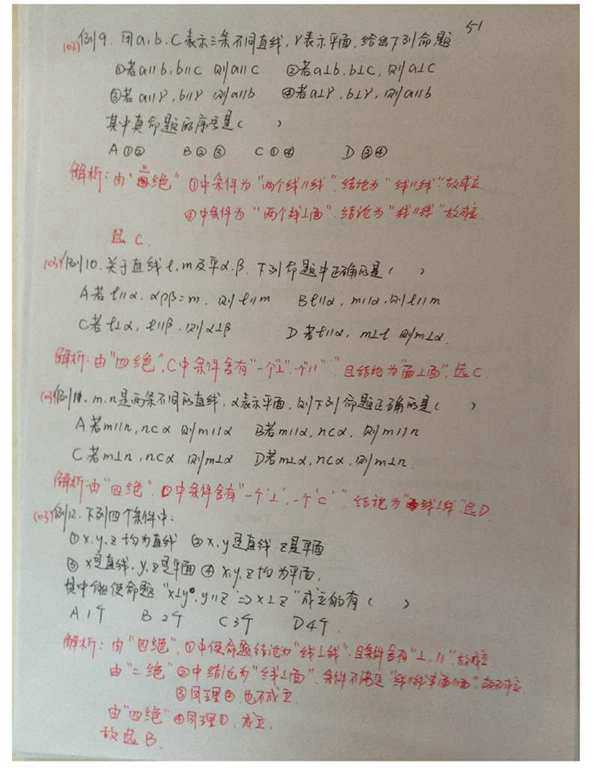 51
例9. 用a,b,c表示三条不同直线,γ表示平面,给出下列命题
①若a∥b,b∥c 则a∥c ②若a⊥b.b⊥c,则a⊥c
③若a∥γ,b∥γ 则a∥b ④若a⊥γ.b⊥γ,则a∥b
其中真命题的序号是( )
A ①② B ②③ C ①④ D ③④
解析:由"四绝" ①中条件为"两个线∥线".结论为"线∥线".故成立.
④中条件为"两个线⊥面".结论为"线∥线"故成立.
选 C.
例10.关于直线l,m及平α.β.下列命题中正确的是( )
A若l∥α.α∩β=m.则l∥m B l∥α,m∥α.则l∥m
C若l⊥α,l∥β.则α⊥β D若l∥α,m⊥l 则m⊥α.
解析:由"四绝",C中条件含有"一个⊥,一个∥" 且结论为"面⊥面".选C.
m.n是两条不同的直线,α表示平面,则下列命题正确的是( )
A若m∥n,n⊂α 则m∥α B若m∥α,n⊂α,则m∥n
C若m⊥n,n⊂α 则m⊥α D若m⊥α,n⊂α,则m⊥n.
解析由"四绝".D中条件含有"一个'⊥',一个'⊂'" 结论为"线⊥线"选D
例12.下列四个条件中:
①x.y.z均为直线 ②x.y是直线 z是平面
③x是直线.y.z是平面 ④x,y,z均为平面.
其中能使命题"x⊥y,y∥z ⇒x⊥z"成立的有( )
A 1个 B 2个 C 3个 D 4个.
解析:由"四绝".①中使命题结论为"线⊥线".且条件含有"⊥.∥"故成立
由"二绝"②中结论为"线⊥面".条件不满足
③同理②也不成立.
由"四绝"④同理①.成立.
故选 B.